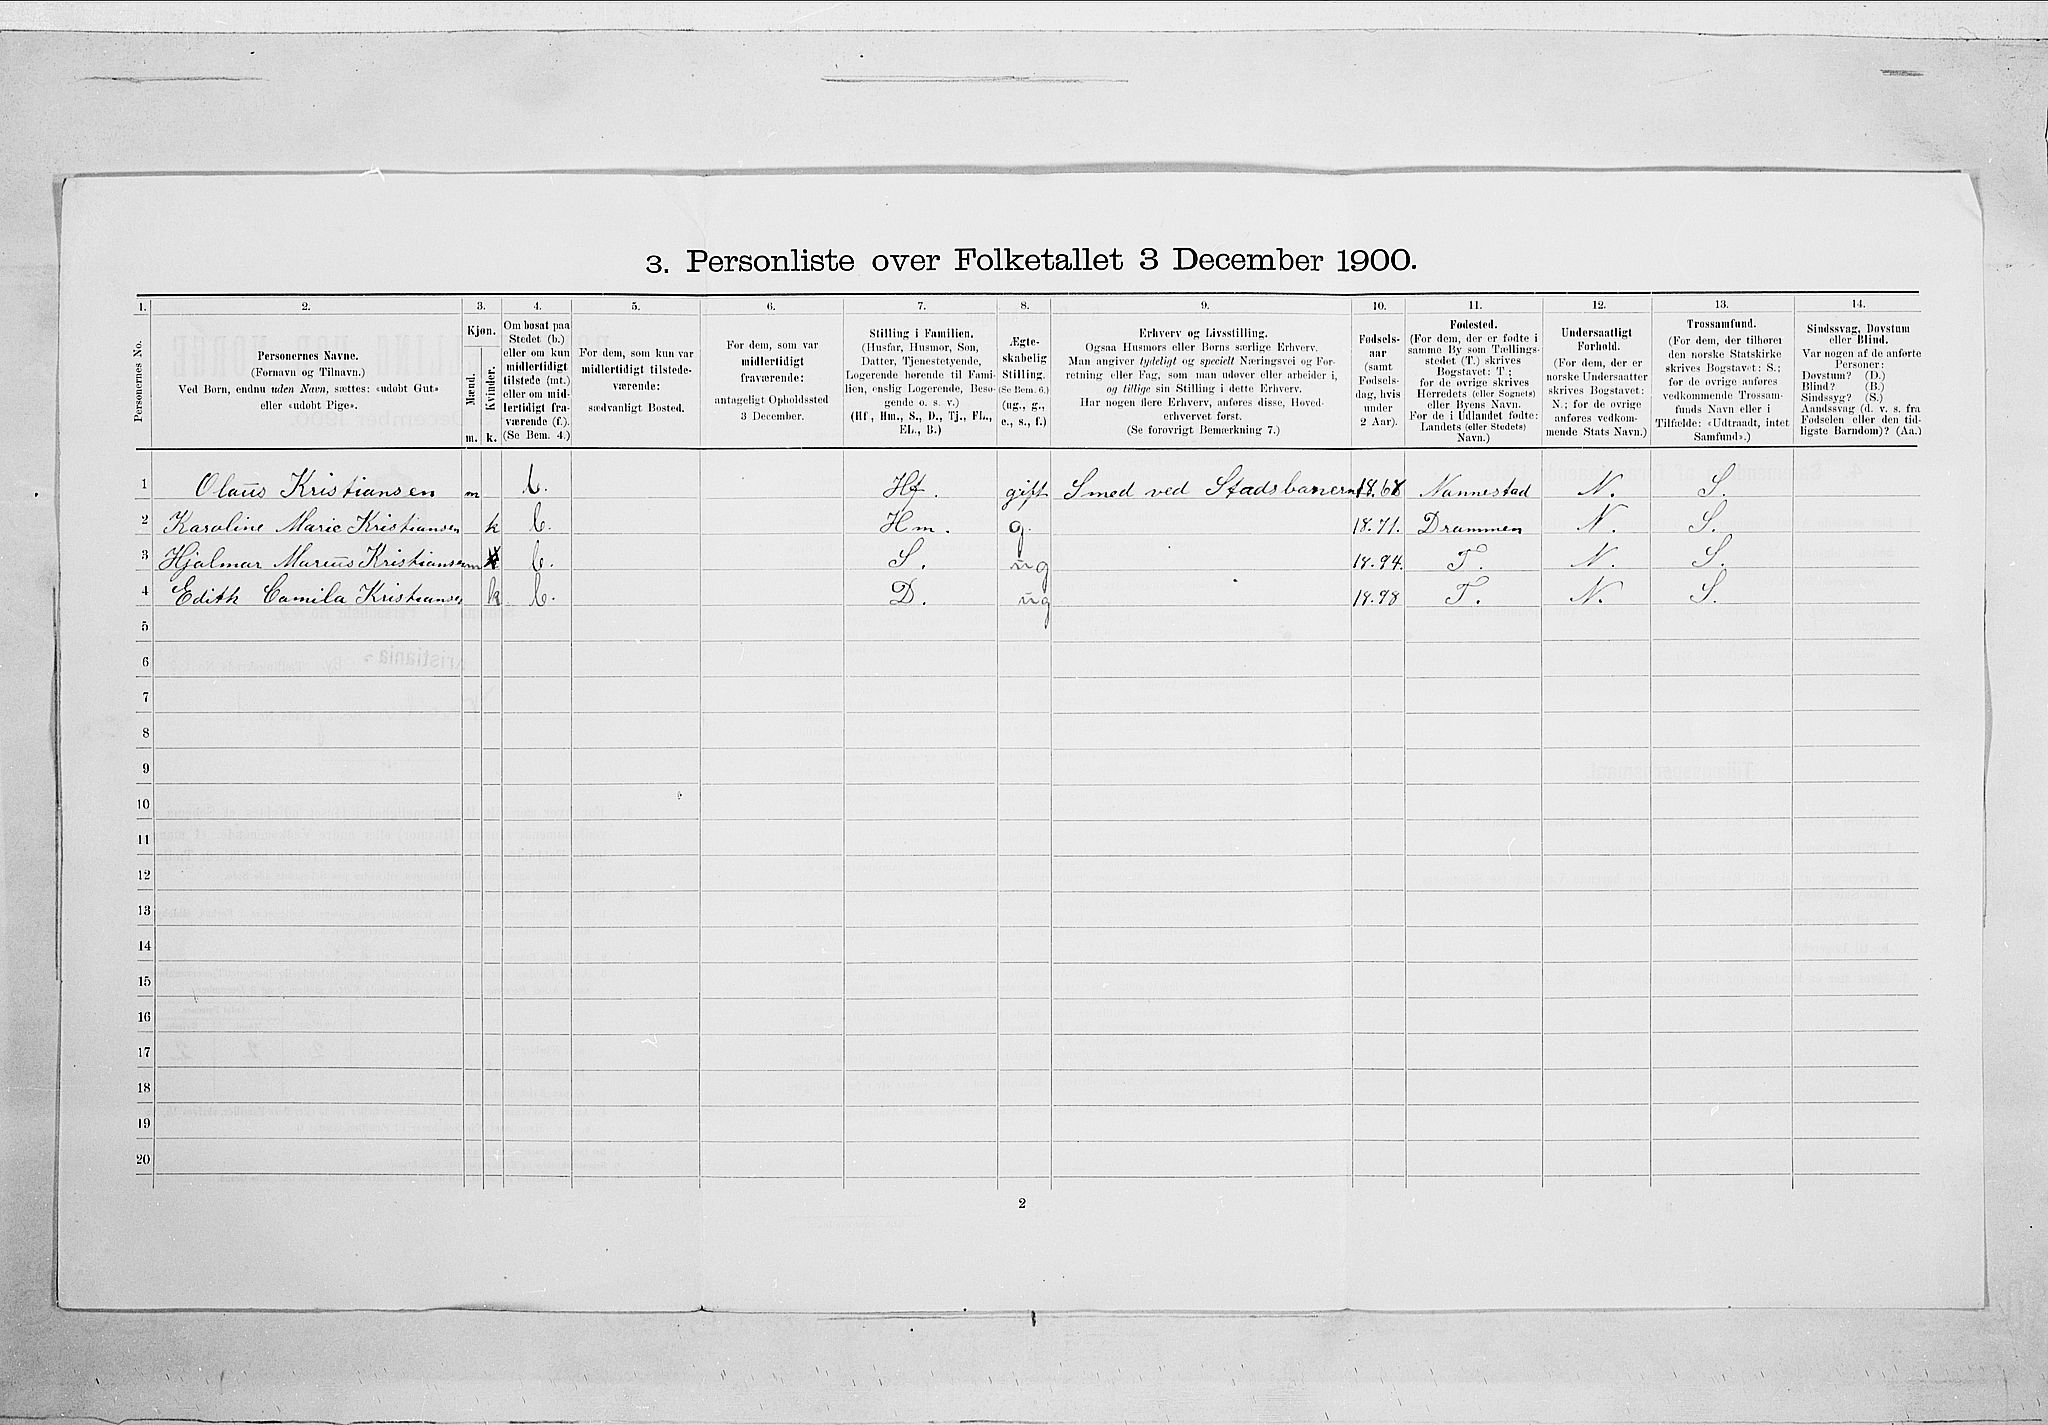 3. Personliste over Folketallet 3 December 1900.
1. 2. 3. 4. 5. 6. 7. 8. 9. 10. 11. 12. 13. 14.
Personernes No.
Personernes Navne.
(Fornavn og Tilnavn.)
Ved Børn, endnu uden Navn, sættes: «udøbt Gut»
eller «udøbt Pige».
Kjøn.
Mænd.
Kvinder.
m. k.
Om bosat paa
Stedet (b.)
eller om kun
midlertidigt
tilstede (mt.)
eller om mid-
lertidigt fra-
værende (f.).
(Se Bem. 4.)
For dem, som kun var
midlertidigt tilstede-
værende:
sædvanligt Bosted.
For dem, som var
midlertidigt
fraværende:
antageligt Opholdssted
3 December.
Stilling i Familien.
(Husfar, Husmor, Søn,
Datter, Tjenestetyende,
Logerende hørende til Fami-
lien, enslig Logerende, Besø-
gende o. s. v.)
(Hf, Hm., S., D., Tj., FL.,
EL., B.)
Ægte-
skabelig
Stilling.
(Se Bem. 6.)
(ug., g.,
e., s., f.)
Erhverv og Livsstilling.
Ogsaa Husmors eller Børns særlige Erhverv.
Man angiver tydeligt og specielt Næringsvei og For-
retning eller Fag, som man udøver eller arbeider i,
og tillige sin Stilling i dette Erhverv.
Har nogen flere Erhverv, anføres disse, Hoved-
erhvervet først.
(Se forøvrigt Bemærkning 7.)
Fødsels-
aar
(samt
Fødsels-
dag, hvis
under
2 Aar).
Fødested.
(For dem, der er fødte i
samme By som Tællings-
stedet (T.) skrives
Bogstavet: T ;
for de øvrige skrives
Herredets (eller Sognets)
eller Byens Navn.
For de i Udlandet fødte:
Landets (eller Stedets)
Navn.)
Undersaatligt
Forhold.
(For dem, der er
norske Undersaatter
skrives Bogstavet:
N.; for de øvrige
anføres vedkom-
mende Stats Navn.)
Trossamfund.
(For dem, der tilhører
den norske Statskirke
skrives Bogstavet: S.;
for de øvrige anføres
vedkommende Trossam-
funds Navn eller i
Tilfælde: «Udtraadt, intet
Samfund».)
Sindssvag, Døvstum
eller Blind.
Var nogen af de anførte
Personer:
Døvstum? (D.)
Blind? (B.)
Sindssyg? (S.)
Aandssvag (d. v. s. fra
Fødselen eller den tid-
ligste Barndom)? (Aa.)
1 Olaus Kristiansen m b. Hf. gift Smed ved Stadsbanerne 18.68 Nannestad N. S.
2 Karoline Marie Kristiansen k b. Hm. g. 18.71. Drammen N. S.
3 Hjalmar Marius Kristiansen m b. S. ug 18.94. T. N. S.
4 Edith Camila Kristiansen k b. D. ug 18.98 T. N. S.
5
6
7
8
9
10
11
12
13
14
15
16
17
18
19
20
2